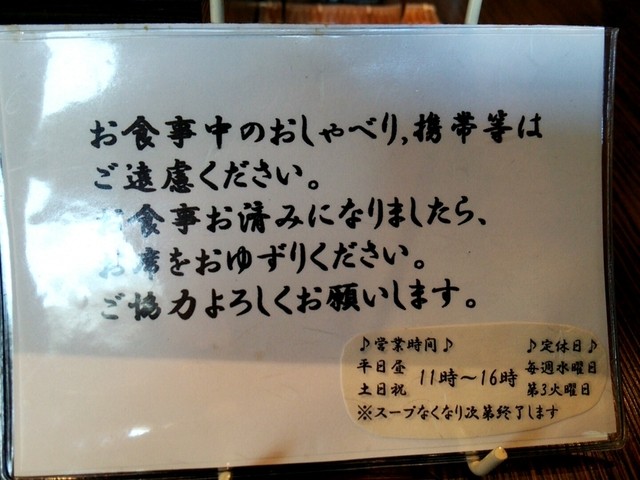 お食事中のおしゃべり,携帯等は
ご遠慮ください。
お食事お済みになりましたら、
お席をおゆずりください。
ご協力よろしくお願いします。
♪営業時間♪
平日昼
土日祝
11時～16時
♪定休日♪
毎週水曜日
第3火曜日
※スープなくなり次第終了します